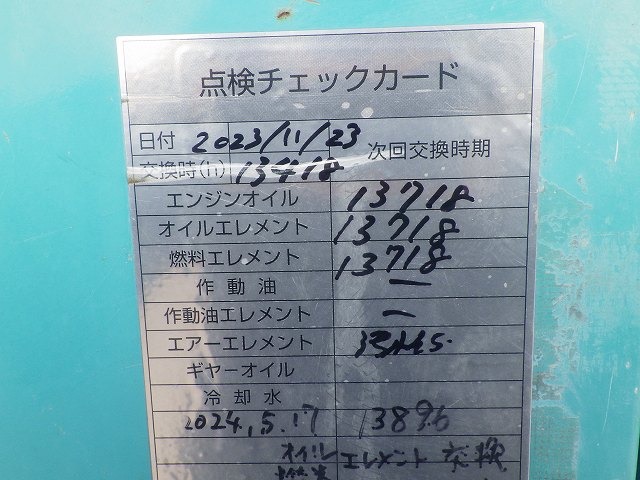 点検チェックカード
日付 2023/11/23
交換時(h) 13418 次回交換時期
エンジンオイル 13718
オイルエレメント 13718
燃料エレメント 13718
作動油 ー
作動油エレメント ー
エアーエレメント
ギヤーオイル
冷却水
2024.5.17 13896
オイルエレメント交換